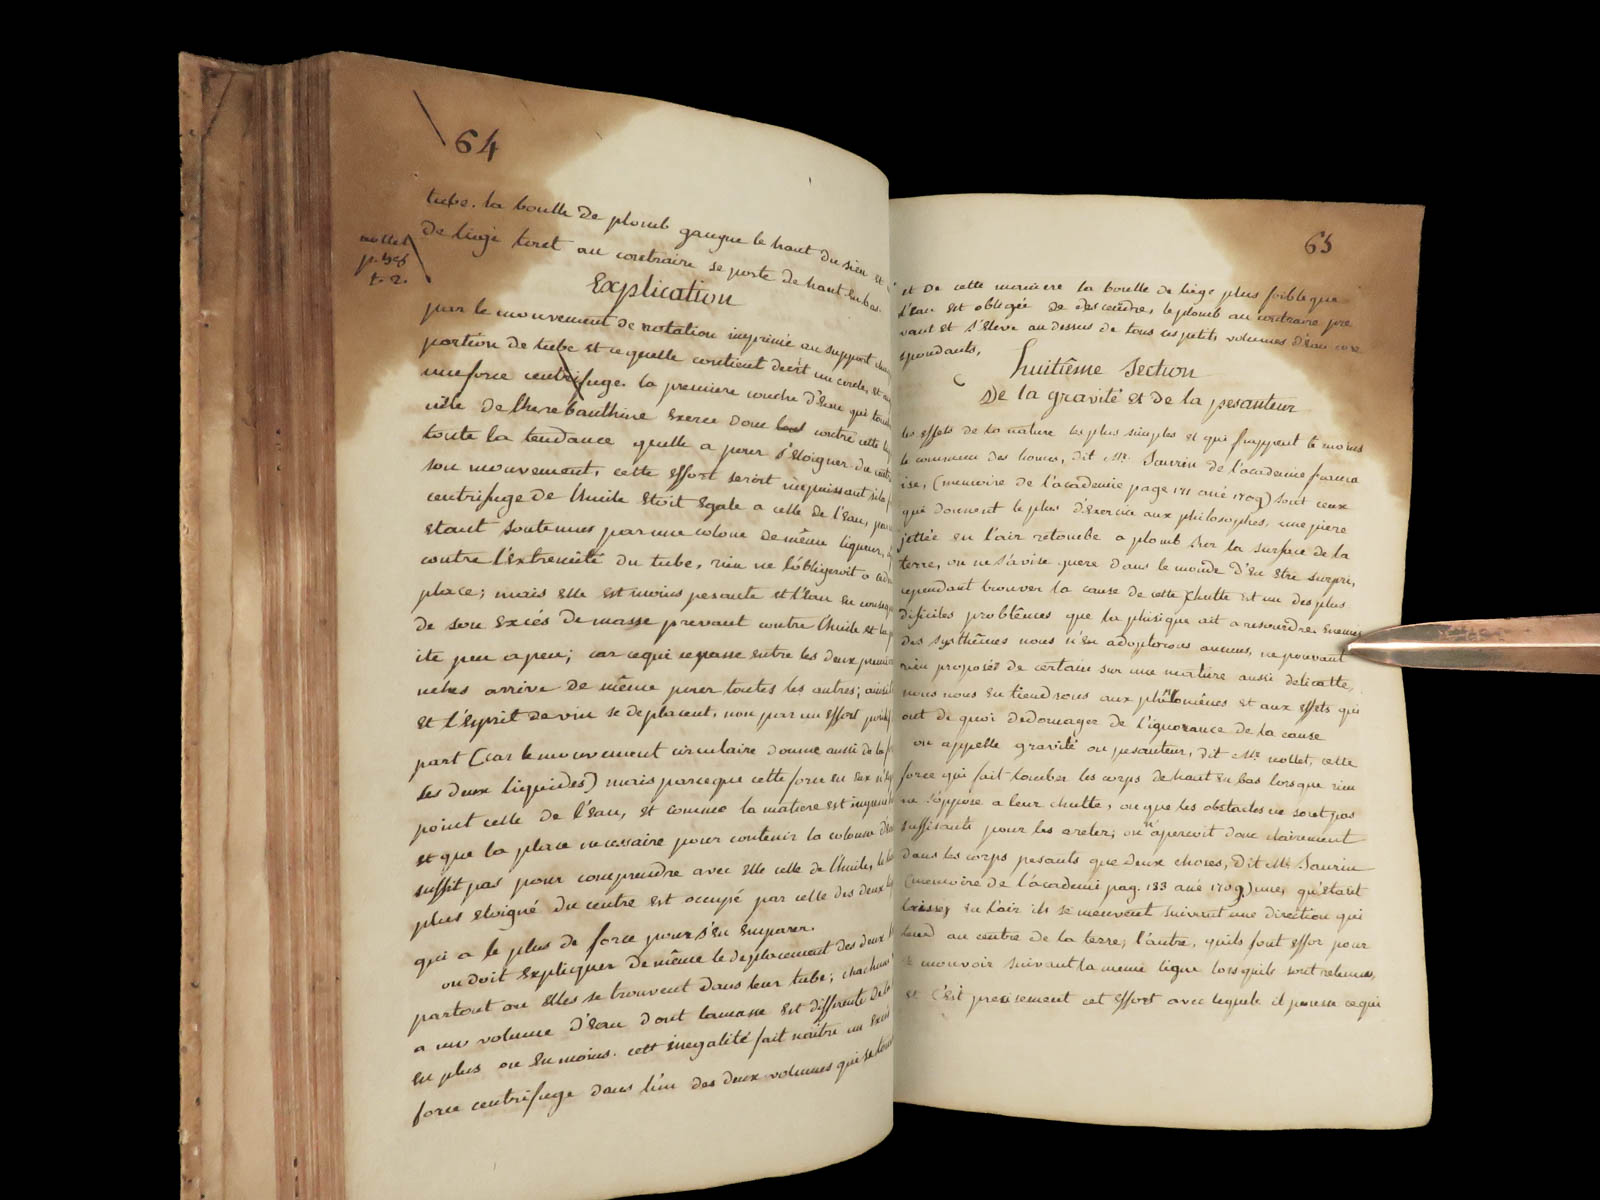 64
tube. la boulle de plomb gaugne le haut du sien et
de liege tout au contraire se porte de haut en bas.
nollet
t. 2.
Explication
par le mouvement de rotation imprimé au support
portion de tube et cequelle contient decrit un cercle, et
une force centrifuge. la premiere couche d'eau qui
de therebanthine exerce donc contre cette
toute la tendance quelle a pour s'eloigner du
son mouvement, cette effort seroit impuissant si la
centrifuge de l'huile etoit egale a celle de l'eau,
etant soutenues par une colone de même liqueur,
contre l'extremité du tube, rien ne l'obligeroit a
place; mais elle est moins pesante et l'eau en
de son excés de masse prevaut contre l'huile et la
ite peu apeu; car cequi cepasse entre les deux
arrive de même pour toutes les autres;
et l'esprit de vin se deplacent, non par un effort
part (car le mouvement circulaire donne aussi de la
les deux liquides) mais parceque cette force en eux
point celle de l'eau, et comme la matiere est
et que la place necessaire pour contenir la colonne
suffit pas pour comprendre avec elle celle de l'huile,
plus eloigné du centre est occupé par celle des deux
qui a le plus de force pour s'en emparer.
on doit expliquer de même le deplacement des deux
partout ou elles se trouvent dans leur tube; chacune
a un volume d'eau dont lamasse est differente de la
en plus ou en moins. cett inegalité fait naitre un excés
force centrifuge dans l'un des deux volumes qui
65
et de cette maniere la boulle de liege plus foible que
l'eau est obligée de descendre, le plomb au contraire pre
vaut et s'eleve au dessus de tous ces petits volumes d'eau core
spondants.
huitiême Section
De la gravité et de la pesanteur
les effets de la nature les plus simples et qui frappent le moins
le commun des homes, dit Mr. Saurin de l'academie franca
ise, (memoire de l'academie page 131 ané 1709) sont ceux
qui donnent le plus d'exercice aux philosophes, une piere
jettée en l'air retombe a plomb sur la surface de la
terre, on ne s'avise guere dans le monde d'en etre surpri,
cependant trouver la cause de cette chutte est un des plus
dificiles problêmes que la phisique ait a resoudre.
des systhêmes nous n'en adopterons aucuns, ne pouvant
rien proposer de certain sur une matiere aussi delicatte,
nous nous en tiendrons aux phénomênes et aux effets qui
ont de quoi dedomager de l'ignorance de la cause
on appelle gravité ou pesanteur, dit Mr. nollet, cette
force qui fait tomber les corps de haut en bas lorsque rien
ne s'oppose a leur chutte, ou que les obstacles ne sont pas
suffisants pour les areter; on n'apercoit donc clairement
dans les corps pesants que deux choses, dit Mr. Saurin
(memoire de l'academi pag. 133 ané 1709) une, qu'etant
laissez en l'air ils se meuvent suivant une direction qui
tend au centre de la terre, l'autre, quils font effor pour
se mouvoir suivant la meme ligne lorsquils sont retenus,
et c'est precisement cet effort avec lequele il pousse cequi